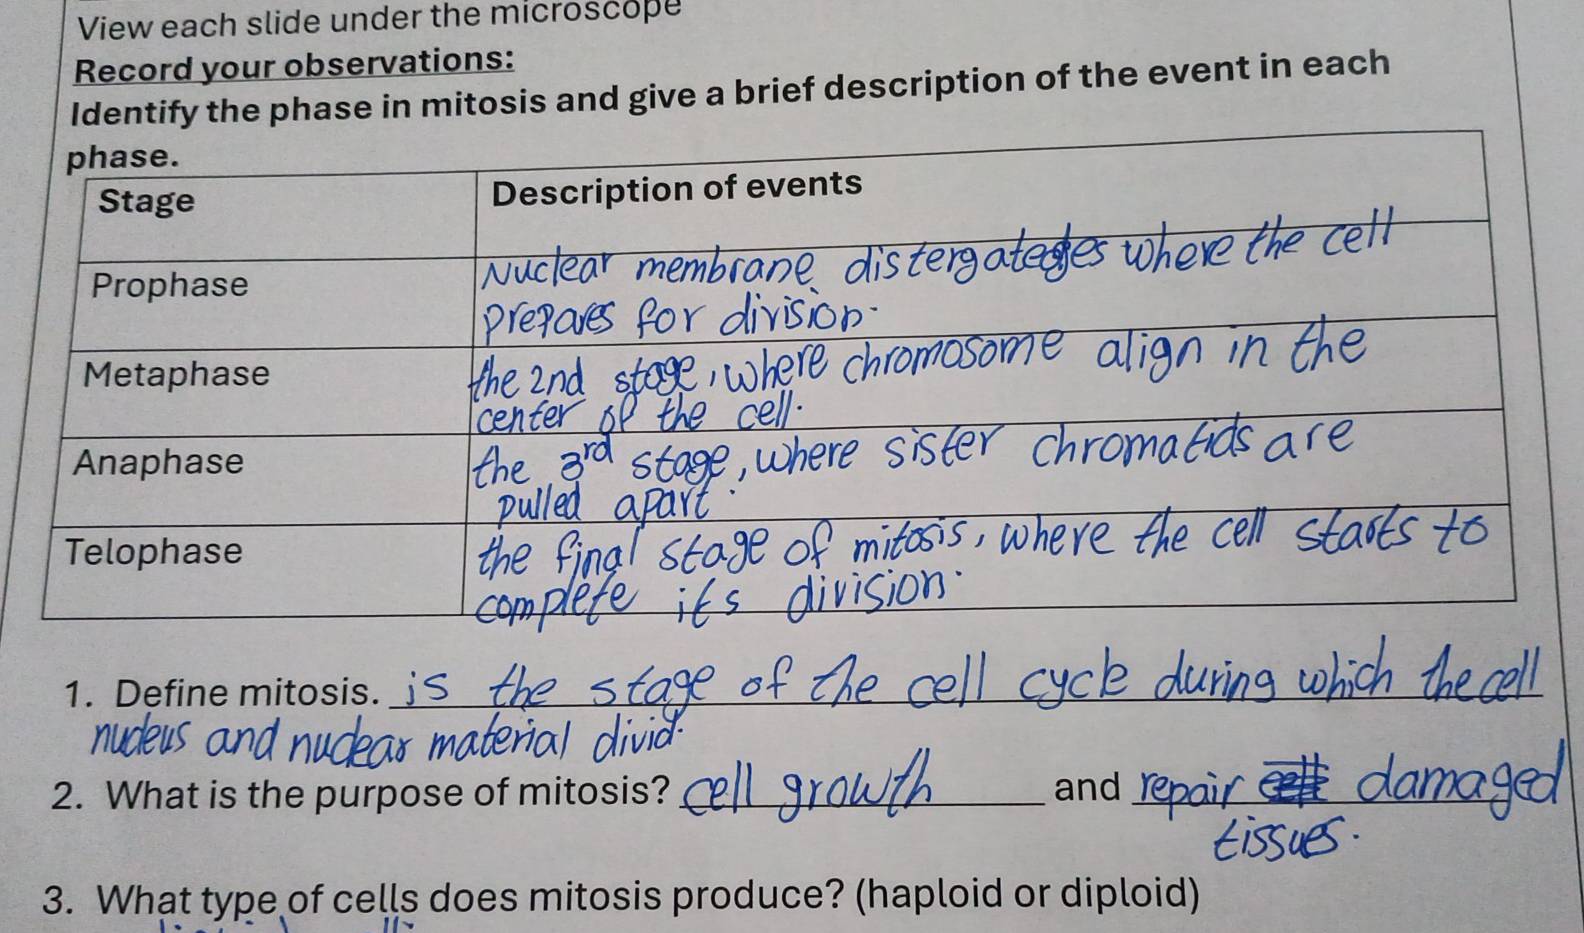 View each slide under the microscope
Record your observations:
Identify the phase in mitosis and give a brief description of the event in each
phase.
Stage Description of events
Prophase Nuclear membrane distergatedges where the cell
prepares for division.
Metaphase the 2nd stage, where chromosome align in the
center of the cell.
Anaphase the 3rd stage, where sister chromatids are
pulled apart.
Telophase the final stage of mitosis, where the cell starts to
complete its division.
1. Define mitosis. is the stage of the cell cycle during which the cell
nucleus and nuclear material divid.
2. What is the purpose of mitosis? cell growth and repair cell damaged
tissues.
3. What type of cells does mitosis produce? (haploid or diploid)